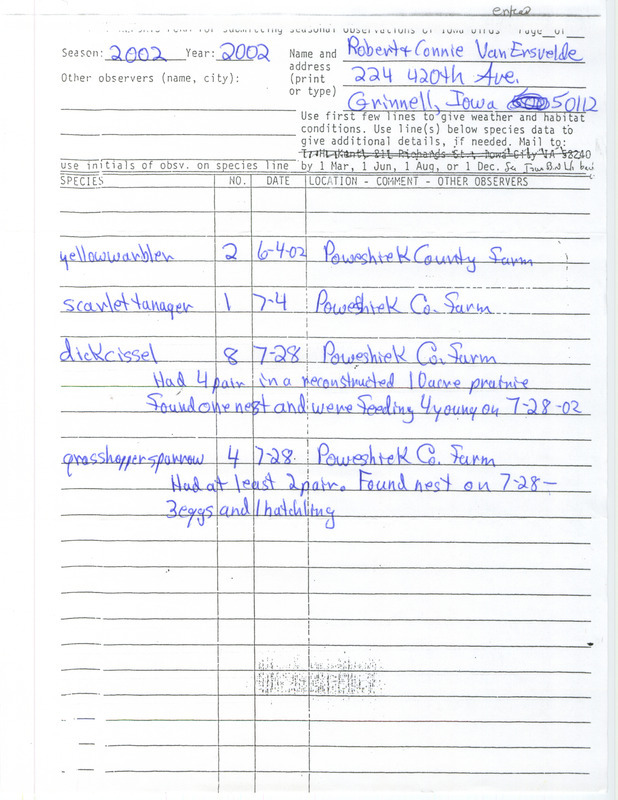 entered
FOR SUBMITTING SEASONAL OBSERVATIONS OF Iowa Birds Page of
Season: 2002 Year: 2002 Name and Robert & Connie Van Ersvelde
address
Other observers (name, city): (print 224 420th Ave.
or type)
Grinnell, Iowa 50112
Use first few lines to give weather and habitat
conditions. Use line(s) below species data to
give additional details, if needed. Mail to:
use initials of obsv. on species line by 1 Mar, 1 Jun, 1 Aug, or 1 Dec.
SPECIES NO. DATE LOCATION - COMMENT - OTHER OBSERVERS
yellow warbler 2 6-4-02 Poweshiek County Farm
scarlet tanager 1 7-4 Poweshiek Co. Farm
dickcissel 8 7-28 Poweshiek Co. Farm
Had 4 pair in a reconstructed 10 acre prairie
Found one nest and were feeding 4 young on 7-28-02
grasshopper sparrow 4 7-28 Poweshiek Co. Farm
Had at least 2 pair. Found nest on 7-28-
3 eggs and 1 hatchling